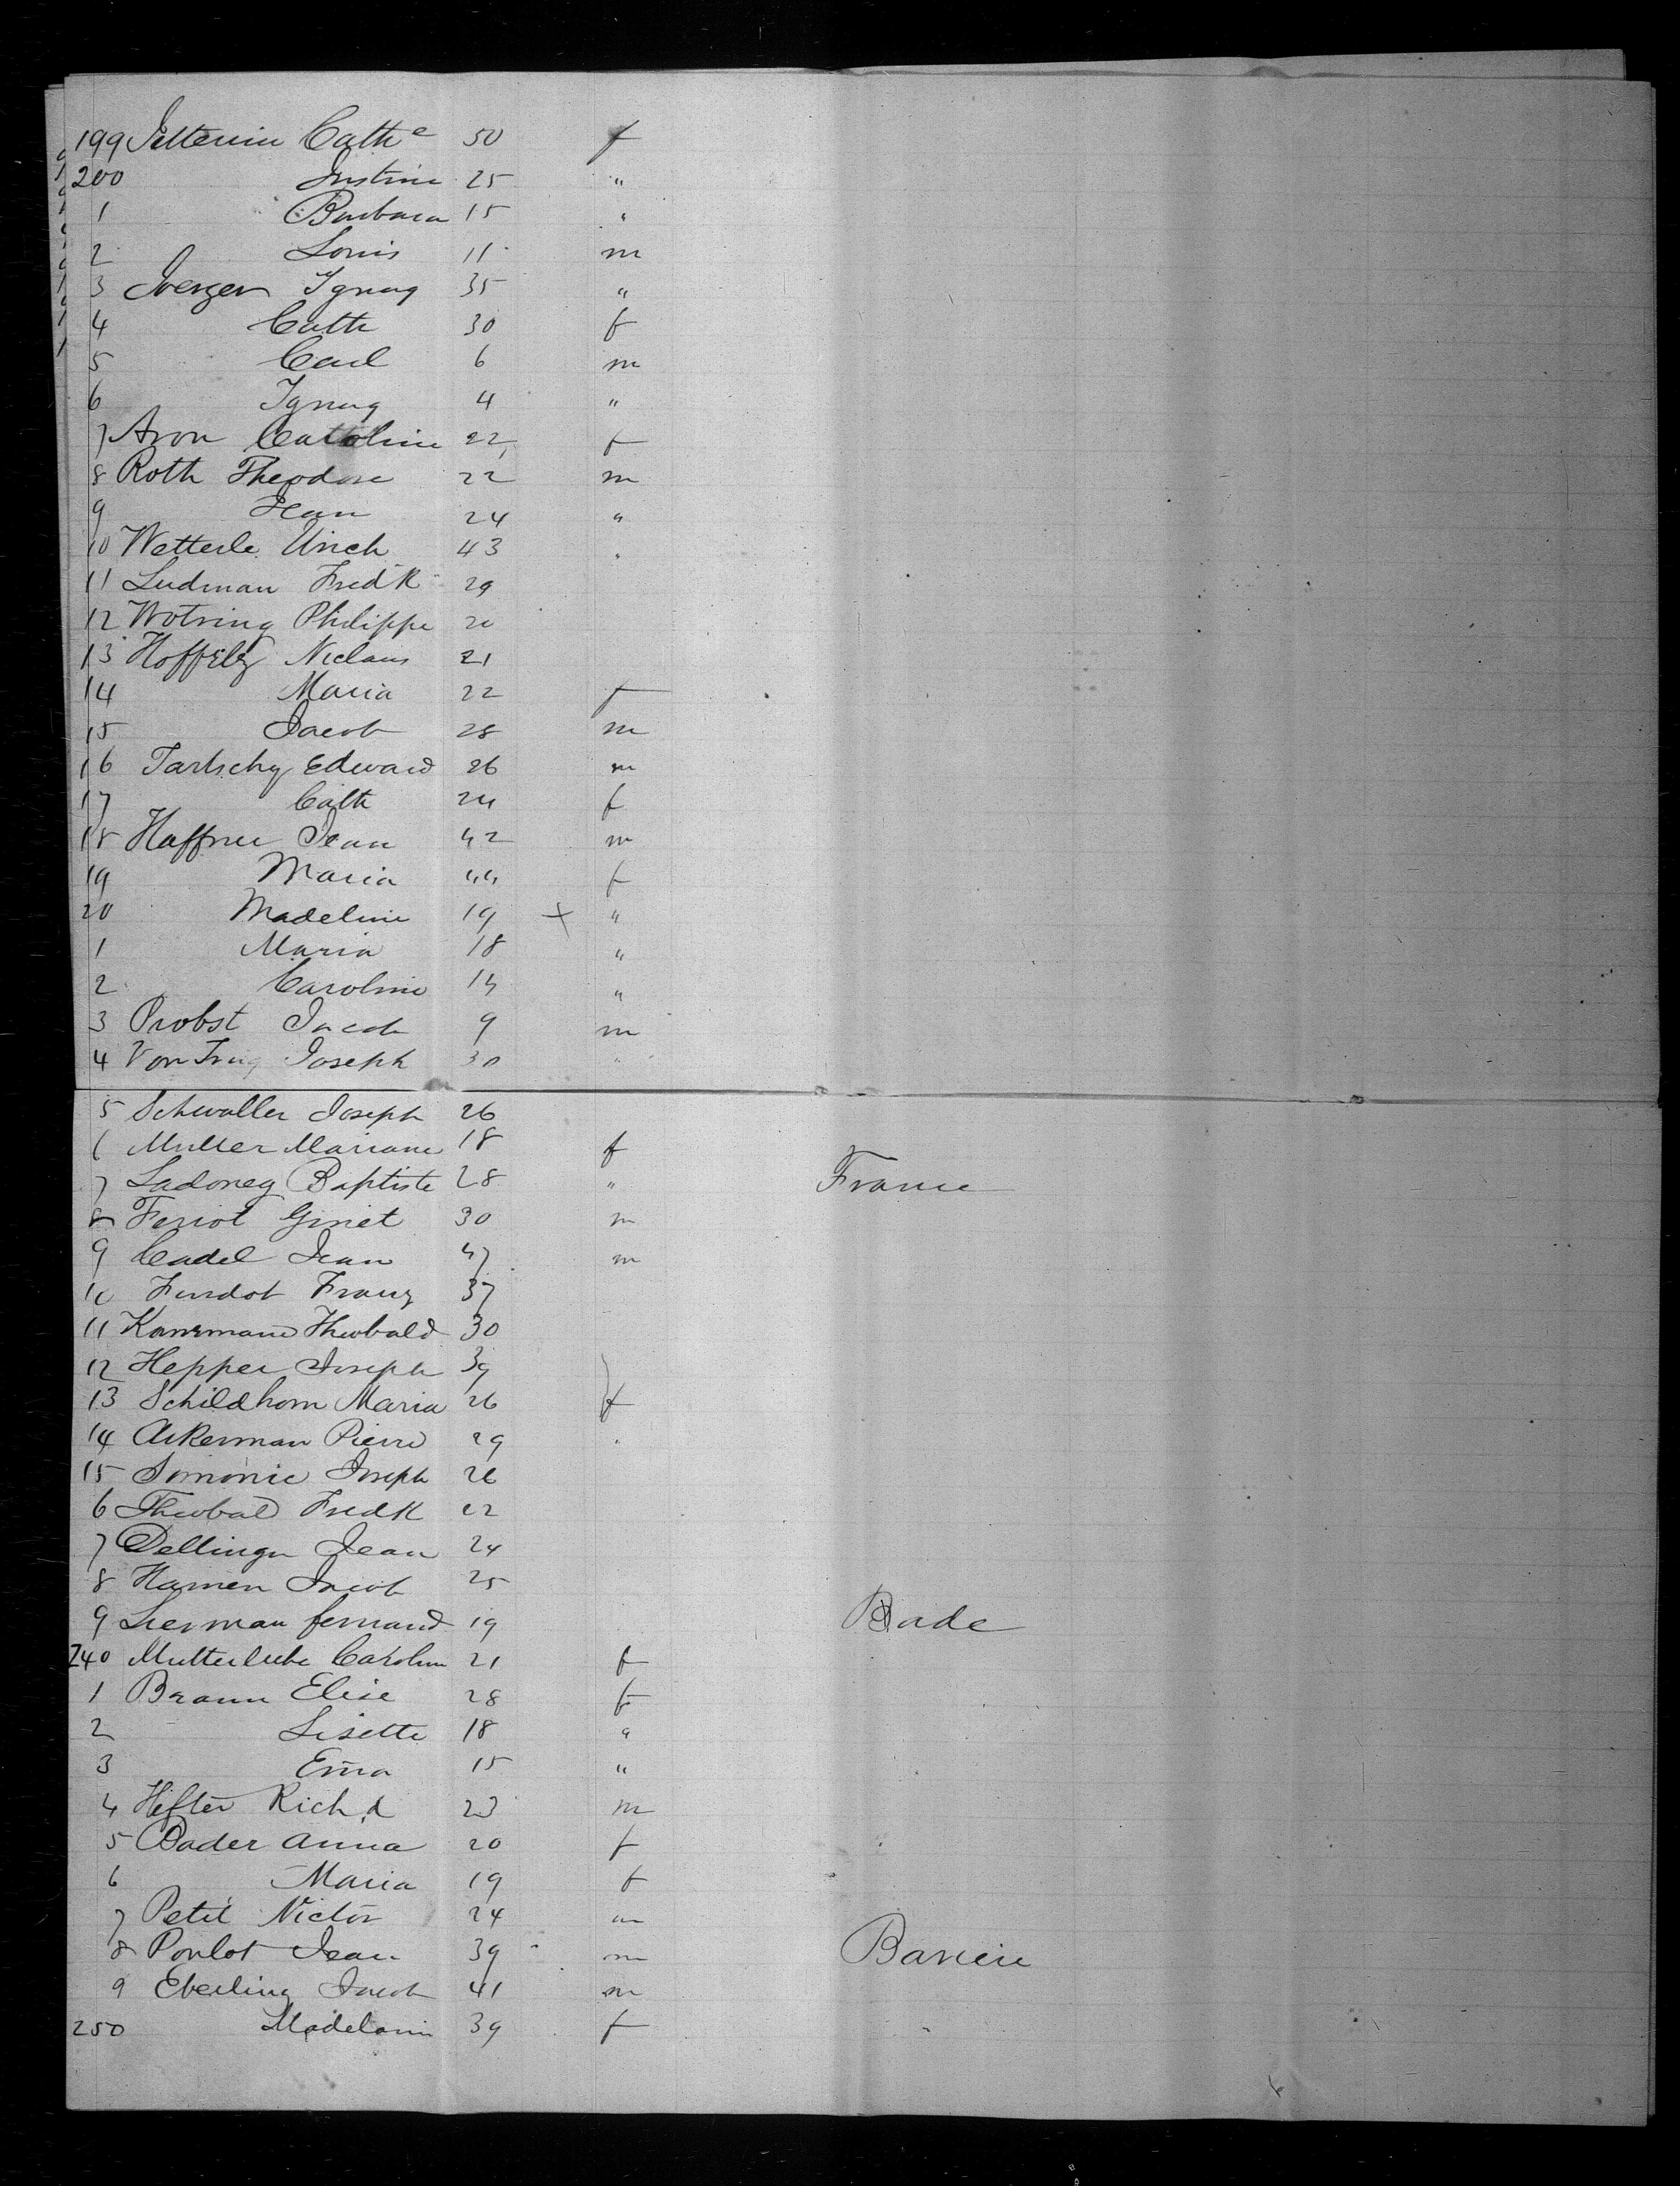 199 Cathe 50 f
200 Justine 25 "
1 Barbara 15 "
2 Louis 11 m
3 Ignag 35 "
4 Cath 30 f
5 Carl 6 m
6 Ignag 4 "
7 Aron 22 f
8 Roth Theodore 22 m
9 Jean 24 "
10 Wetterle Urich 43 "
11 Ludman Fredk 29
12 Wotring Philippe 20
13 Niclaus 21
14 Maria 22 f
15 Jacob 28 m
16 Edward 26 m
17 Cath 24 f
18 Haffner Jean 42 m
19 Maria 44 f
20 Madeline 19 x "
1 Maria 18 "
2 Caroline 14 "
3 Probst Jacob 9 m
4 Joseph 30 "
5 Schwaller Joseph 26
6 Muller Mariane 18 f
7 Ladoney Baptiste 28 " France
8 Feriot 30 m
9 Cadel Jean 47 m
10 Franz 37
11 Theobald 30
12 Hepper Joseph 39
13 Schildhorn Maria 26 f
14 Akerman Pierre 29
15 Simonie Joseph 26
6 Theobald Fredk 22
7 Dellinger Jean 24
8 Hamen Jacob 25
9 fernand 19 Bade
240 Carolin 21 f
1 Braun Elise 28 f
2 Lisette 18 "
3 Em̄a 15 "
4 Hefter Richd 23 m
5 Bader Anna 20 f
6 Maria 19 f
7 Petit Victor 24 m
8 Poulot Jean 39 m Baviere
9 Eberling Jacob 41 m
250 39 f